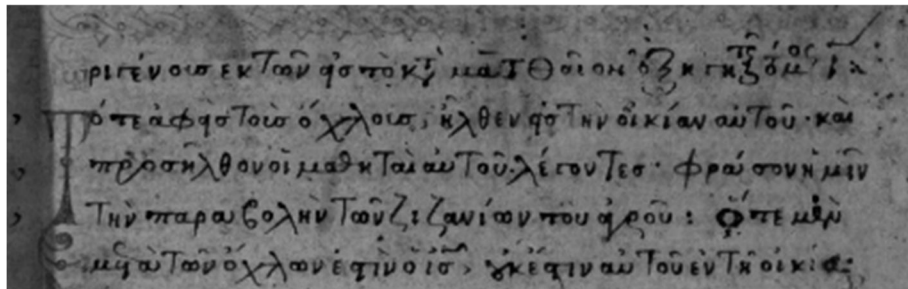 ριγένους ἐκ τῶν εἰς τὸ κτ ματθαῖον ἐξηγη τόμος
Τότε ἀφεὶς τοὺς ὄχλους, ἦλθεν εἰς τὴν οἰκίαν αὐτοῦ· καὶ
προσῆλθον οἱ μαθηταὶ αὐτοῦ λέγοντες· φράσον ἡμῖν
τὴν παραβολὴν τῶν ζιζανίων τοῦ ἀγροῦ: ὅτε μὲν
μετὰ τῶν ὄχλων ἐστὶν ὁ ις, οὐκ ἔστιν αὐτοῦ ἐν τῇ οἰκίᾳ·